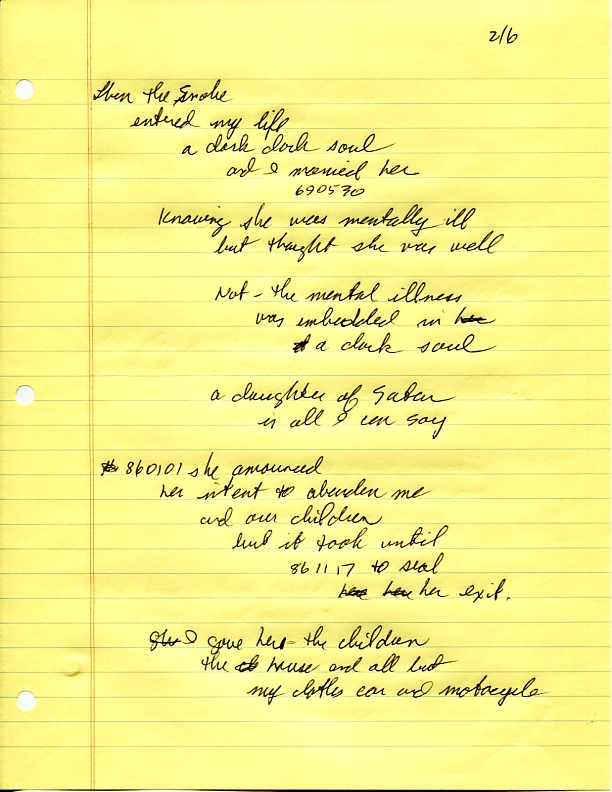 2/6
Then the Snake
entered my life
a dark dark soul
and I married her
690530
Knowing she was mentally ill
but thought she was well
Not - the mental illness
was imbedded in her
a dark soul
a daughter of Satan
is all I can say
860101 she announced
her intent to abandon me
and our children
but it took until
861117 to seal
her her her exit.
She I gave her - the children
the house and all but
my clothes car and motocycle